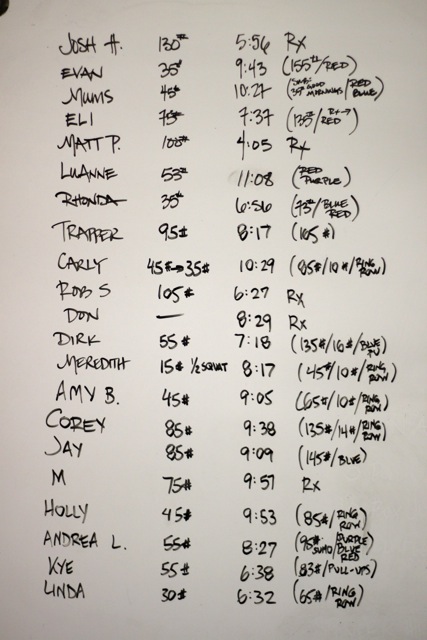 JOSH H. 130# 5:56 RX
EVAN 35# 9:43 (155#/RED)
MUMS 45# 10:27 GOOD MORNINGS/RED BLUE)
ELI 75# 7:37 (135#/RX→ RED)
MATT P. 100# 4:05 RX
LUANNE 53# 11:08 (RED PURPLE)
RHONDA 35# 6:56 (73#/BLUE RED)
TRAPPER 95# 8:17 (165#)
CARLY 45#→35# 10:29 (85#/10#/RING ROW)
ROB S 105# 6:27 RX
DON — 8:29 RX
DIRK 55# 7:18 (135#/16#/BLUE PU)
MEREDITH 15# 1/2 SQUAT 8:17 (45#/10#/RING ROW)
AMY B. 45# 9:05 (65#/10#/RING ROW)
COREY 85# 9:38 (135#/14#/RING ROW)
JAY 85# 9:09 (145#/BLUE)
M 75# 9:57 RX
HOLLY 45# 9:53 (85#/RING ROW)
ANDREA L. 55# 8:27 (95# SUMO/PURPLE BLUE RED)
KYE 55# 6:38 (83#/PULL-UPS)
LINDA 30# 6:32 (65#/RING ROW)